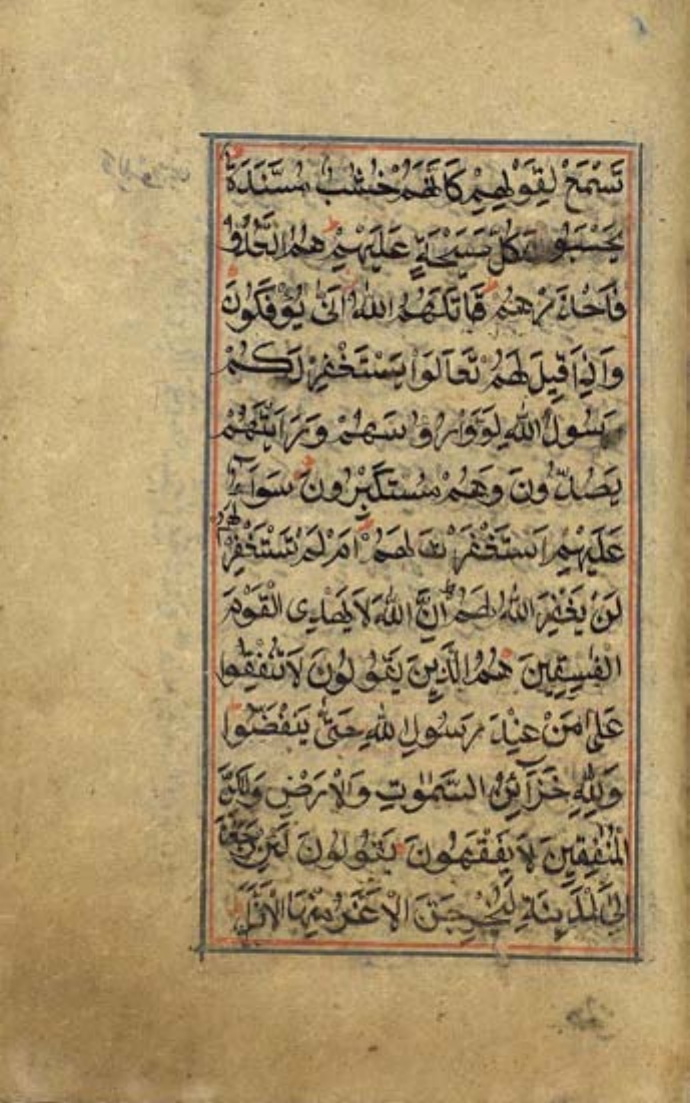 تَسْمَعْ لِقَوْلِهِمْ كَاَنَّهُمْ خُشُبٌ مُسَنَّدَةٌ
يَحْسَبُونَ كُلَّ صَيْحَةٍ عَلَيْهِمْ هُمُ الْعَدُوُّ
فَاحْذَرْهُمْ قَاتَلَهُمُ اللهُ اَنّٰى يُؤْفَكُونَ
وَاِذَا قِيلَ لَهُمْ تَعَالَوْا يَسْتَغْفِرْ لَكُمْ
رَسُولُ اللهِ لَوَّوْا رُؤُسَهُمْ وَرَاَيْتَهُمْ
يَصُدُّونَ وَهُمْ مُسْتَكْبِرُونَ سَوَآءٌ
عَلَيْهِمْ اَسْتَغْفَرْتَ لَهُمْ اَمْ لَمْ تَسْتَغْفِرْ لَهُمْ
لَنْ يَغْفِرَ اللهُ لَهُمْ اِنَّ اللهَ لَا يَهْدِى الْقَوْمَ
الْفٰسِقِينَ هُمُ الَّذِينَ يَقُولُونَ لَا تُنْفِقُوا
عَلٰى مَنْ عِنْدَ رَسُولِ اللهِ حَتّٰى يَنْفَضُّوا
وَلِلّٰهِ خَزَآئِنُ السَّمٰوٰتِ وَالْاَرْضِ وَلٰكِنَّ
الْمُنٰفِقِينَ لَا يَفْقَهُونَ يَقُولُونَ لَئِنْ رَجَعْنَا
اِلَى الْمَدِينَةِ لَيُخْرِجَنَّ الْاَعَزُّ مِنْهَا الْاَذَلَّ